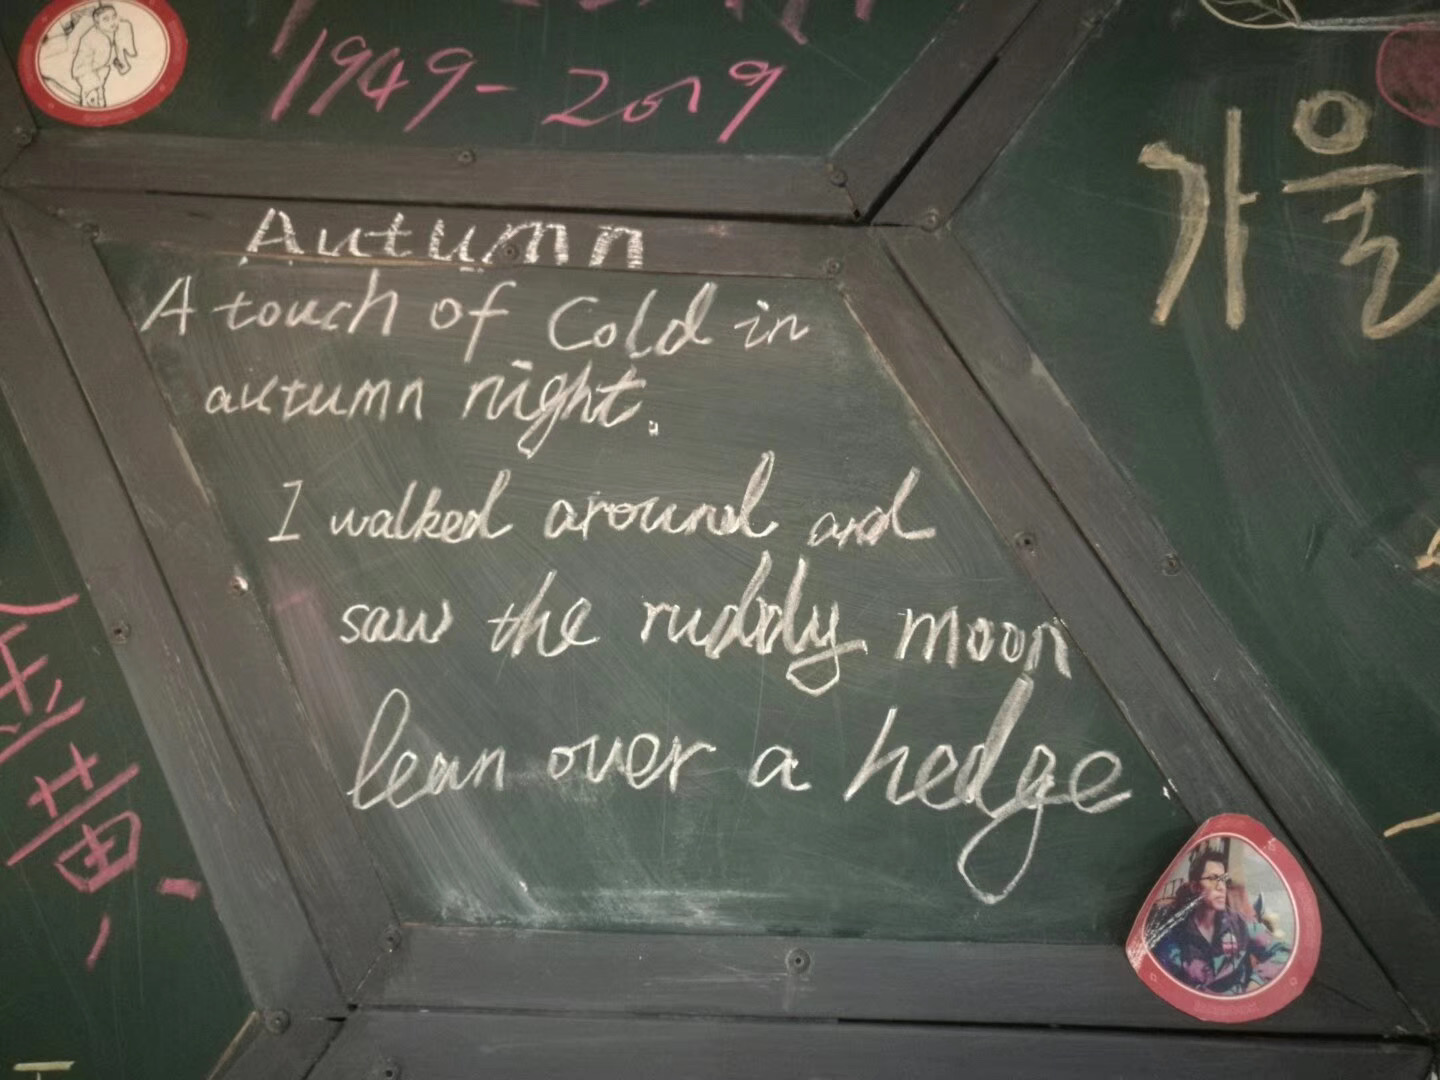 1949-2019
Autumn
A touch of Cold in
autumn night.
I walked around and
saw the ruddy moon
lean over a hedge
가을
金
黄